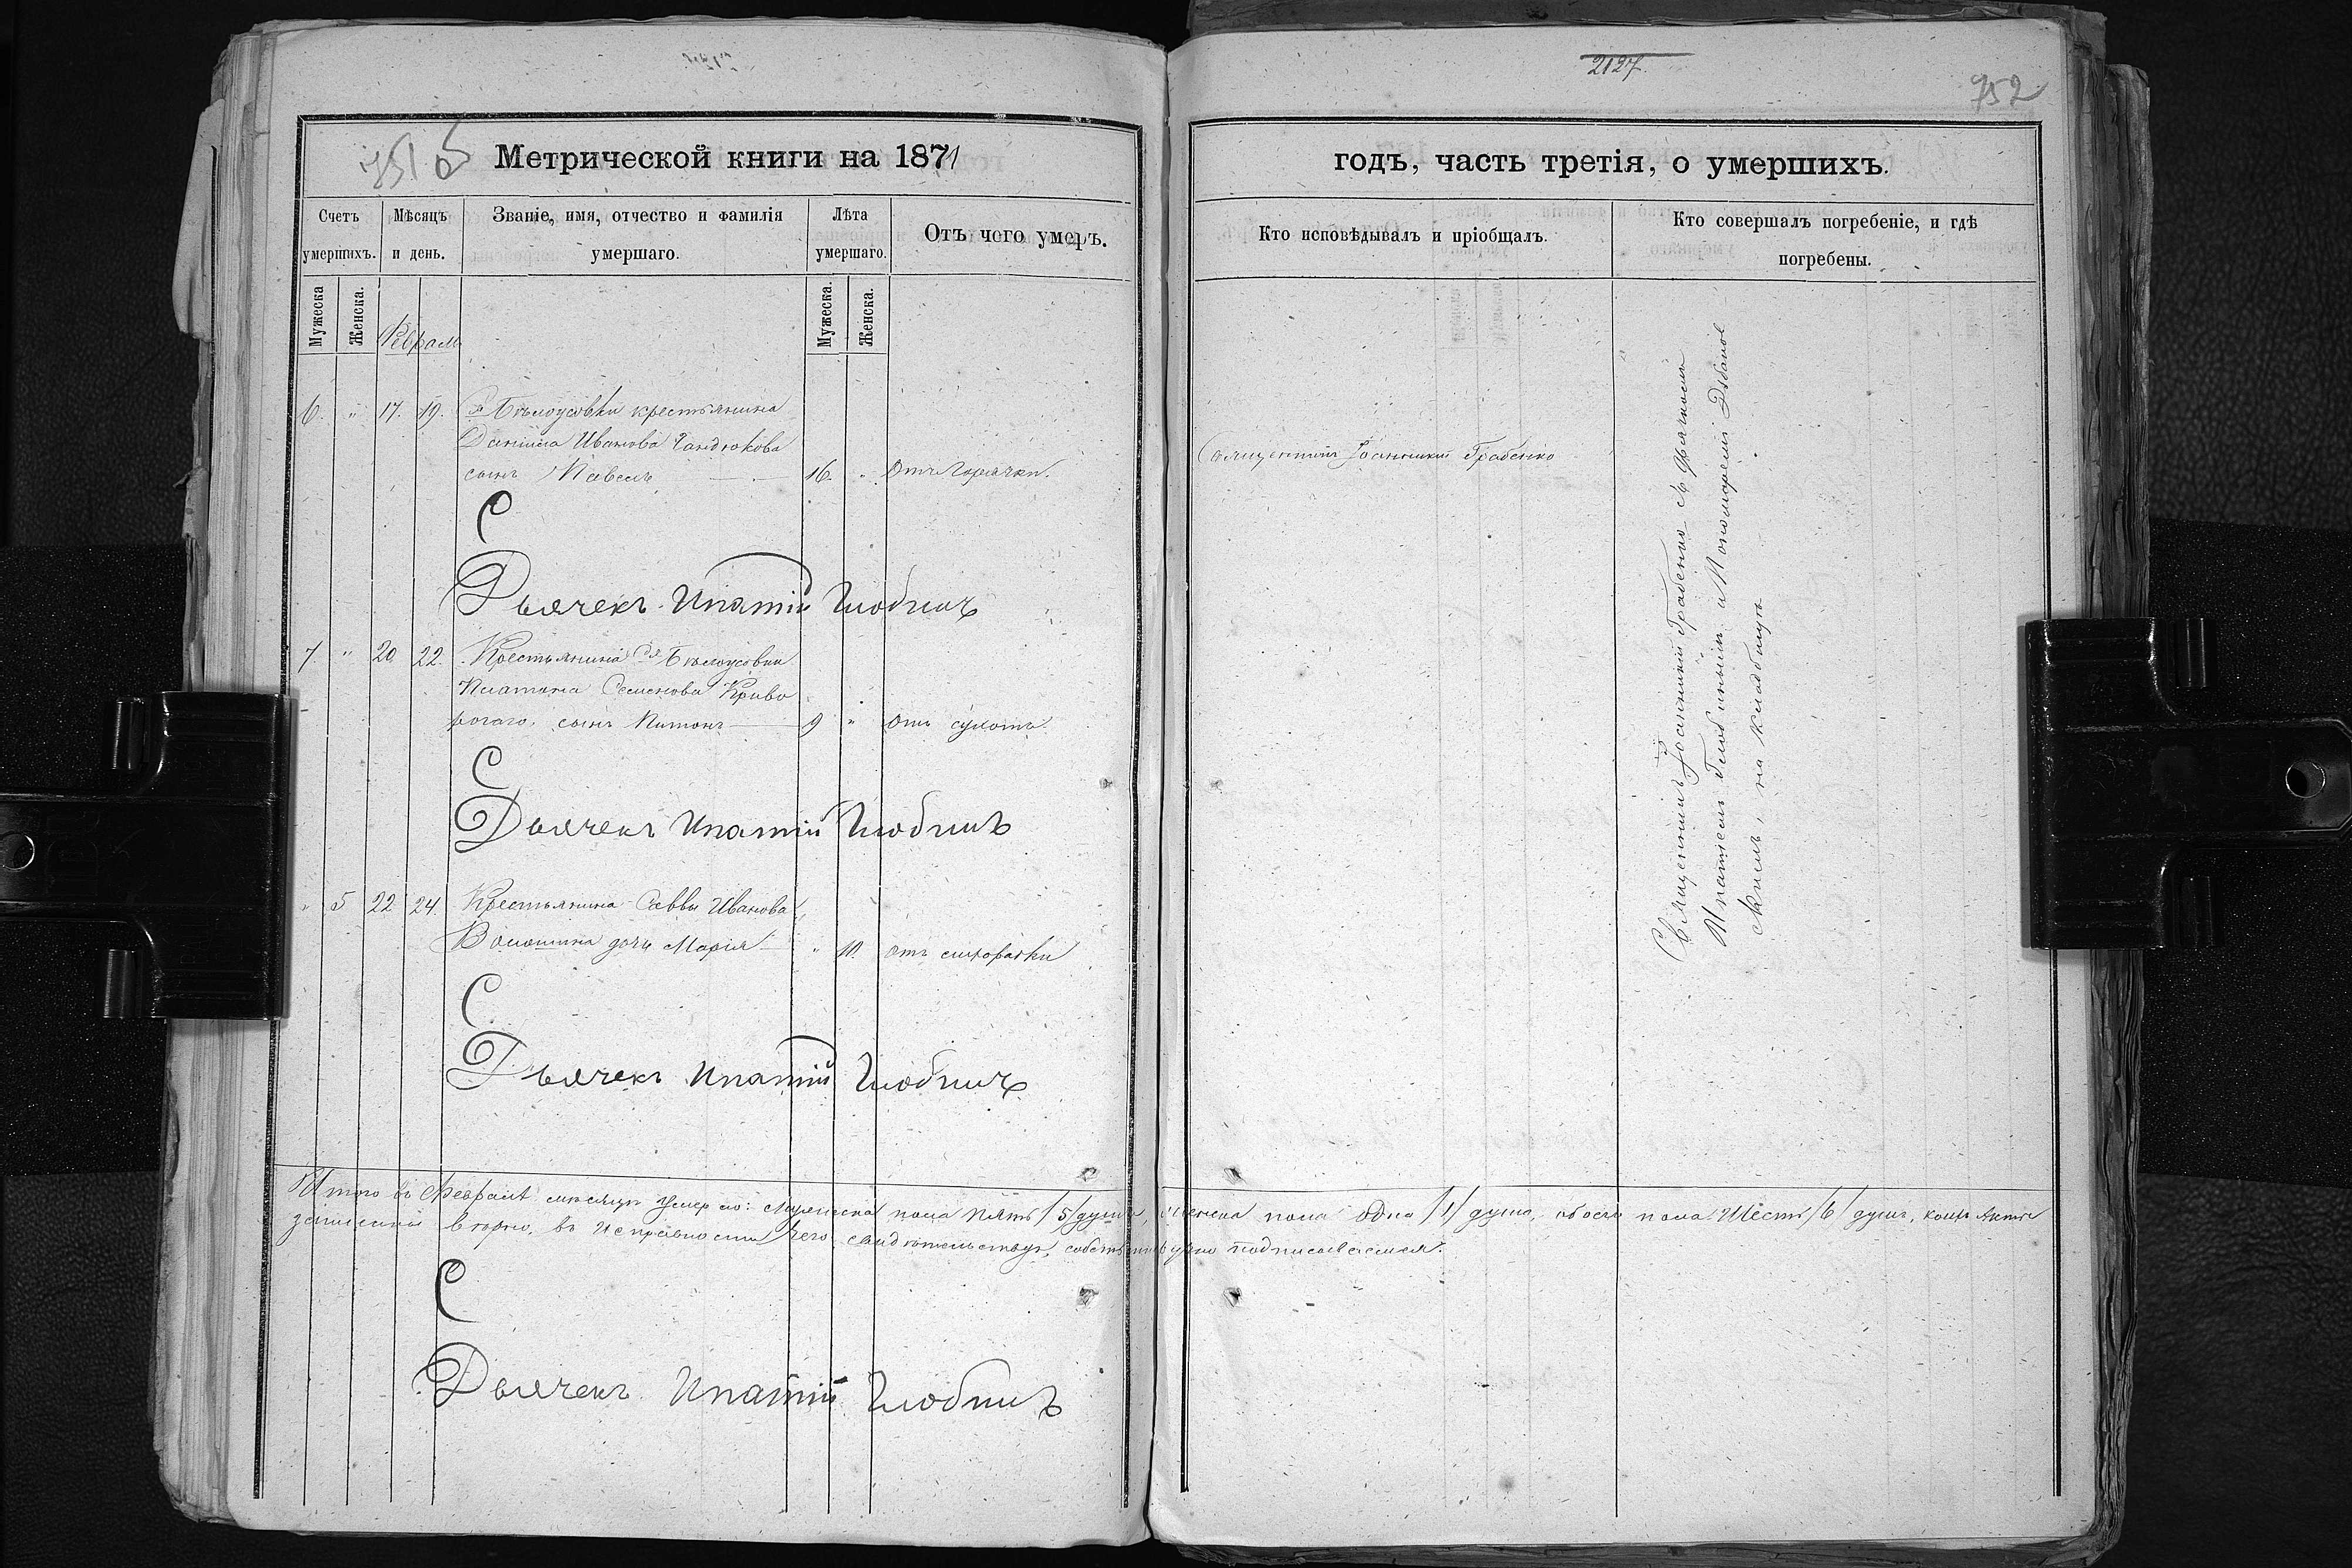 2127
752
Метрической книги на 1871
годъ, часть третія, о умершихъ.
Счетъ умершихъ.
Мѣсяцъ и день.
Званіе, имя, отчество и фамилія умершаго.
Лѣта умершаго.
Отъ чего умеръ.
Кто исповѣдывалъ и пріобщалъ.
Кто совершалъ погребеніе, и гдѣ погребены.
Мужеска
Женска.
Февраль
Мужеска.
Женска.
6. " 17. 19. Бѣлоусовки крестьянина
Даніила Иванова Гандюкова
сынъ Павелъ 16. " Отъ горячки.
Священникъ Іоанникій Грабенко
Дьячекъ Ипатій Глобинъ
7. " 20 22. Крестьянина Бѣлоусовки
Платона Семенова Криво
рогаго сынъ Платонъ 9 " Отъ сухотъ.
Дьячекъ Ипатій Глобинъ
" 5 22 24. Крестьянина Саввы Иванова
Волошина дочь Марія " 10. отъ лихорадки
Дьячекъ Ипатій Глобинъ
Священникъ Іоанникій Грабенко съ Дьячкомъ
Ипатіемъ Глобинымъ и Пономаремъ
скимъ, на кладбищѣ
Итого въ Февралѣ мѣсяцѣ умерло: мужеска пола пять /5/ душъ, женска пола одна /1/ душа, обоего пола шесть /6/ душъ, коихъ акты
записаны вѣрно, въ исправности чего свидѣтельствуя, собственноручно подписываемся.
Дьячекъ Ипатій Глобинъ